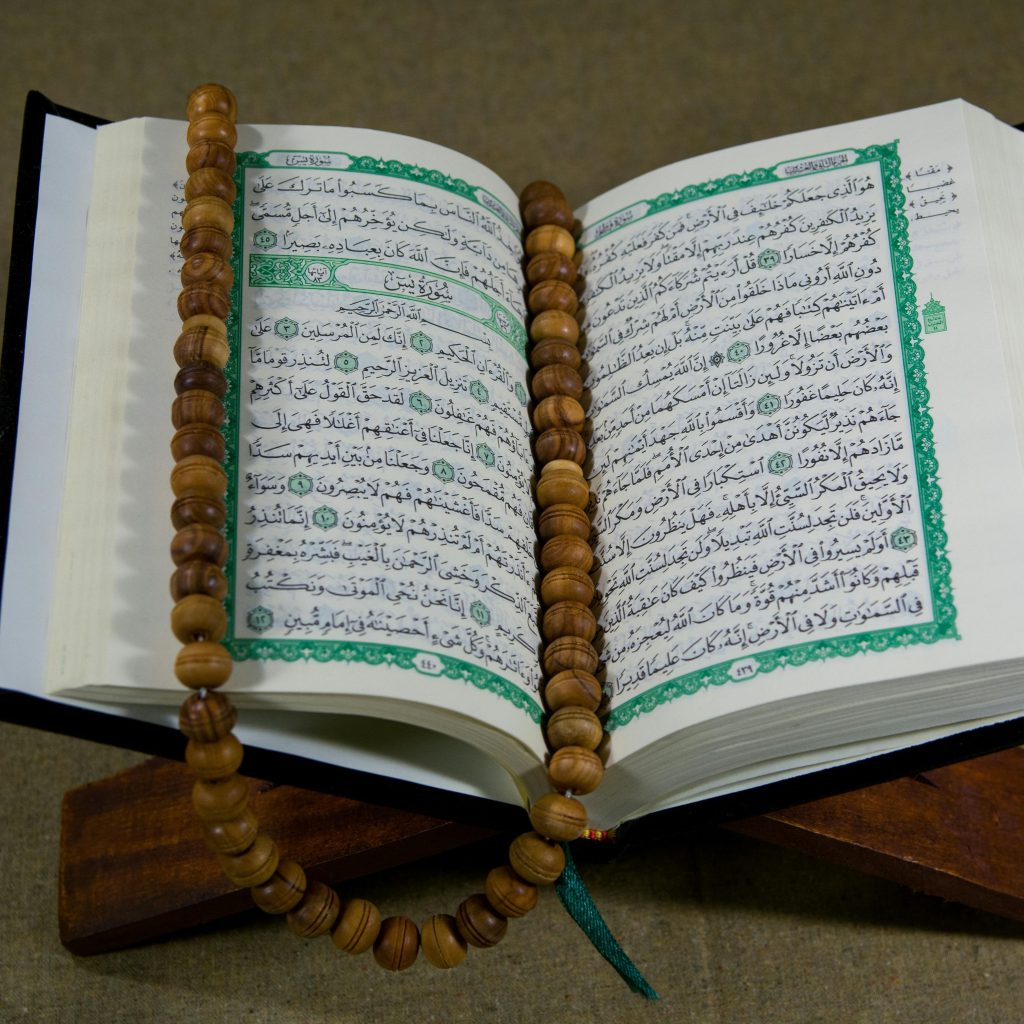 الجزء الثاني والعشرون
هُوَ ٱلَّذِى جَعَلَكُمْ خَلَٰٓئِفَ فِى ٱلْأَرْضِ فَمَن كَفَرَ فَعَلَيْهِ كُفْرُهُۥ
يَزِيدُ ٱلْكَٰفِرِينَ كُفْرُهُمْ عِندَ رَبِّهِمْ إِلَّا مَقْتًا وَلَا يَزِيدُ
كُفْرُهُمْ إِلَّا خَسَارًا ٣٩ قُلْ أَرَءَيْتُمْ شُرَكَآءَكُمُ ٱلَّذِينَ تَدْعُونَ
دُونِ ٱللَّهِ أَرُونِى مَاذَا خَلَقُوا۟ مِنَ ٱلْأَرْضِ أَمْ لَهُمْ شِرْكٌ فِى
أَمْ ءَاتَيْنَٰهُمْ كِتَٰبًا فَهُمْ عَلَىٰ بَيِّنَتٍ مِّنْهُ بَلْ إِن يَعِدُ ٱلظَّٰلِمُونَ
بَعْضُهُم بَعْضًا إِلَّا غُرُورًا ٤٠ ۞ إِنَّ ٱللَّهَ يُمْسِكُ
وَٱلْأَرْضَ أَن تَزُولَا وَلَئِن زَالَتَآ إِنْ أَمْسَكَهُمَا مِنْ أَحَدٍ مِّنۢ
إِنَّهُۥ كَانَ حَلِيمًا غَفُورًا ٤١ وَأَقْسَمُوا۟ بِٱللَّهِ جَهْدَ أَيْمَٰنِهِمْ لَئِن
جَآءَهُمْ نَذِيرٌ لَّيَكُونُنَّ أَهْدَىٰ مِنْ إِحْدَى ٱلْأُمَمِ فَلَمَّا جَآءَهُمْ
مَّا زَادَهُمْ إِلَّا نُفُورًا ٤٢ ٱسْتِكْبَارًا فِى ٱلْأَرْضِ وَمَكْرَ
وَلَا يَحِيقُ ٱلْمَكْرُ ٱلسَّيِّئُ إِلَّا بِأَهْلِهِۦ فَهَلْ يَنظُرُونَ إِلَّا
ٱلْأَوَّلِينَ فَلَن تَجِدَ لِسُنَّتِ ٱللَّهِ تَبْدِيلًا وَلَن تَجِدَ لِسُنَّتِ ٱللَّهِ
٤٣ أَوَلَمْ يَسِيرُوا۟ فِى ٱلْأَرْضِ فَيَنظُرُوا۟ كَيْفَ كَانَ عَٰقِبَةُ ٱلَّذِينَ
قَبْلِهِمْ وَكَانُوٓا۟ أَشَدَّ مِنْهُمْ قُوَّةً وَمَا كَانَ ٱللَّهُ لِيُعْجِزَهُۥ مِن
فِى ٱلسَّمَٰوَٰتِ وَلَا فِى ٱلْأَرْضِ إِنَّهُۥ كَانَ عَلِيمًا قَدِيرًا
٤٣٩
سُورَةُ يسٓ
ٱللَّهُ ٱلنَّاسَ بِمَا كَسَبُوا۟ مَا تَرَكَ عَلَىٰ
مِن دَآبَّةٍ وَلَٰكِن يُؤَخِّرُهُمْ إِلَىٰٓ أَجَلٍ مُّسَمًّى
أَجَلُهُمْ فَإِنَّ ٱللَّهَ كَانَ بِعِبَادِهِۦ بَصِيرًۢا ٤٥
سُورَةُ يسٓ آياتها ٨٣
بِسْمِ ٱللَّهِ ٱلرَّحْمَٰنِ ٱلرَّحِيمِ
وَٱلْقُرْءَانِ ٱلْحَكِيمِ ٢ إِنَّكَ لَمِنَ ٱلْمُرْسَلِينَ ٣ عَلَىٰ
٤ تَنزِيلَ ٱلْعَزِيزِ ٱلرَّحِيمِ ٥ لِتُنذِرَ قَوْمًا مَّآ
فَهُمْ غَٰفِلُونَ ٦ لَقَدْ حَقَّ ٱلْقَوْلُ عَلَىٰٓ أَكْثَرِهِمْ
٧ إِنَّا جَعَلْنَا فِىٓ أَعْنَٰقِهِمْ أَغْلَٰلًا فَهِىَ إِلَى
فَهُم مُّقْمَحُونَ ٨ وَجَعَلْنَا مِنۢ بَيْنِ أَيْدِيهِمْ سَدًّا
سَدًّا فَأَغْشَيْنَٰهُمْ فَهُمْ لَا يُبْصِرُونَ ٩ وَسَوَآءٌ
ءَأَنذَرْتَهُمْ أَمْ لَمْ تُنذِرْهُمْ لَا يُؤْمِنُونَ ١٠ إِنَّمَا تُنذِرُ
ٱلذِّكْرَ وَخَشِىَ ٱلرَّحْمَٰنَ بِٱلْغَيْبِ فَبَشِّرْهُ بِمَغْفِرَةٍ
كَرِيمٍ ١١ إِنَّا نَحْنُ نُحْىِ ٱلْمَوْتَىٰ وَنَكْتُبُ
وَءَاثَٰرَهُمْ وَكُلَّ شَىْءٍ أَحْصَيْنَٰهُ فِىٓ إِمَامٍ مُّبِينٍ ١٢
٤٤٠